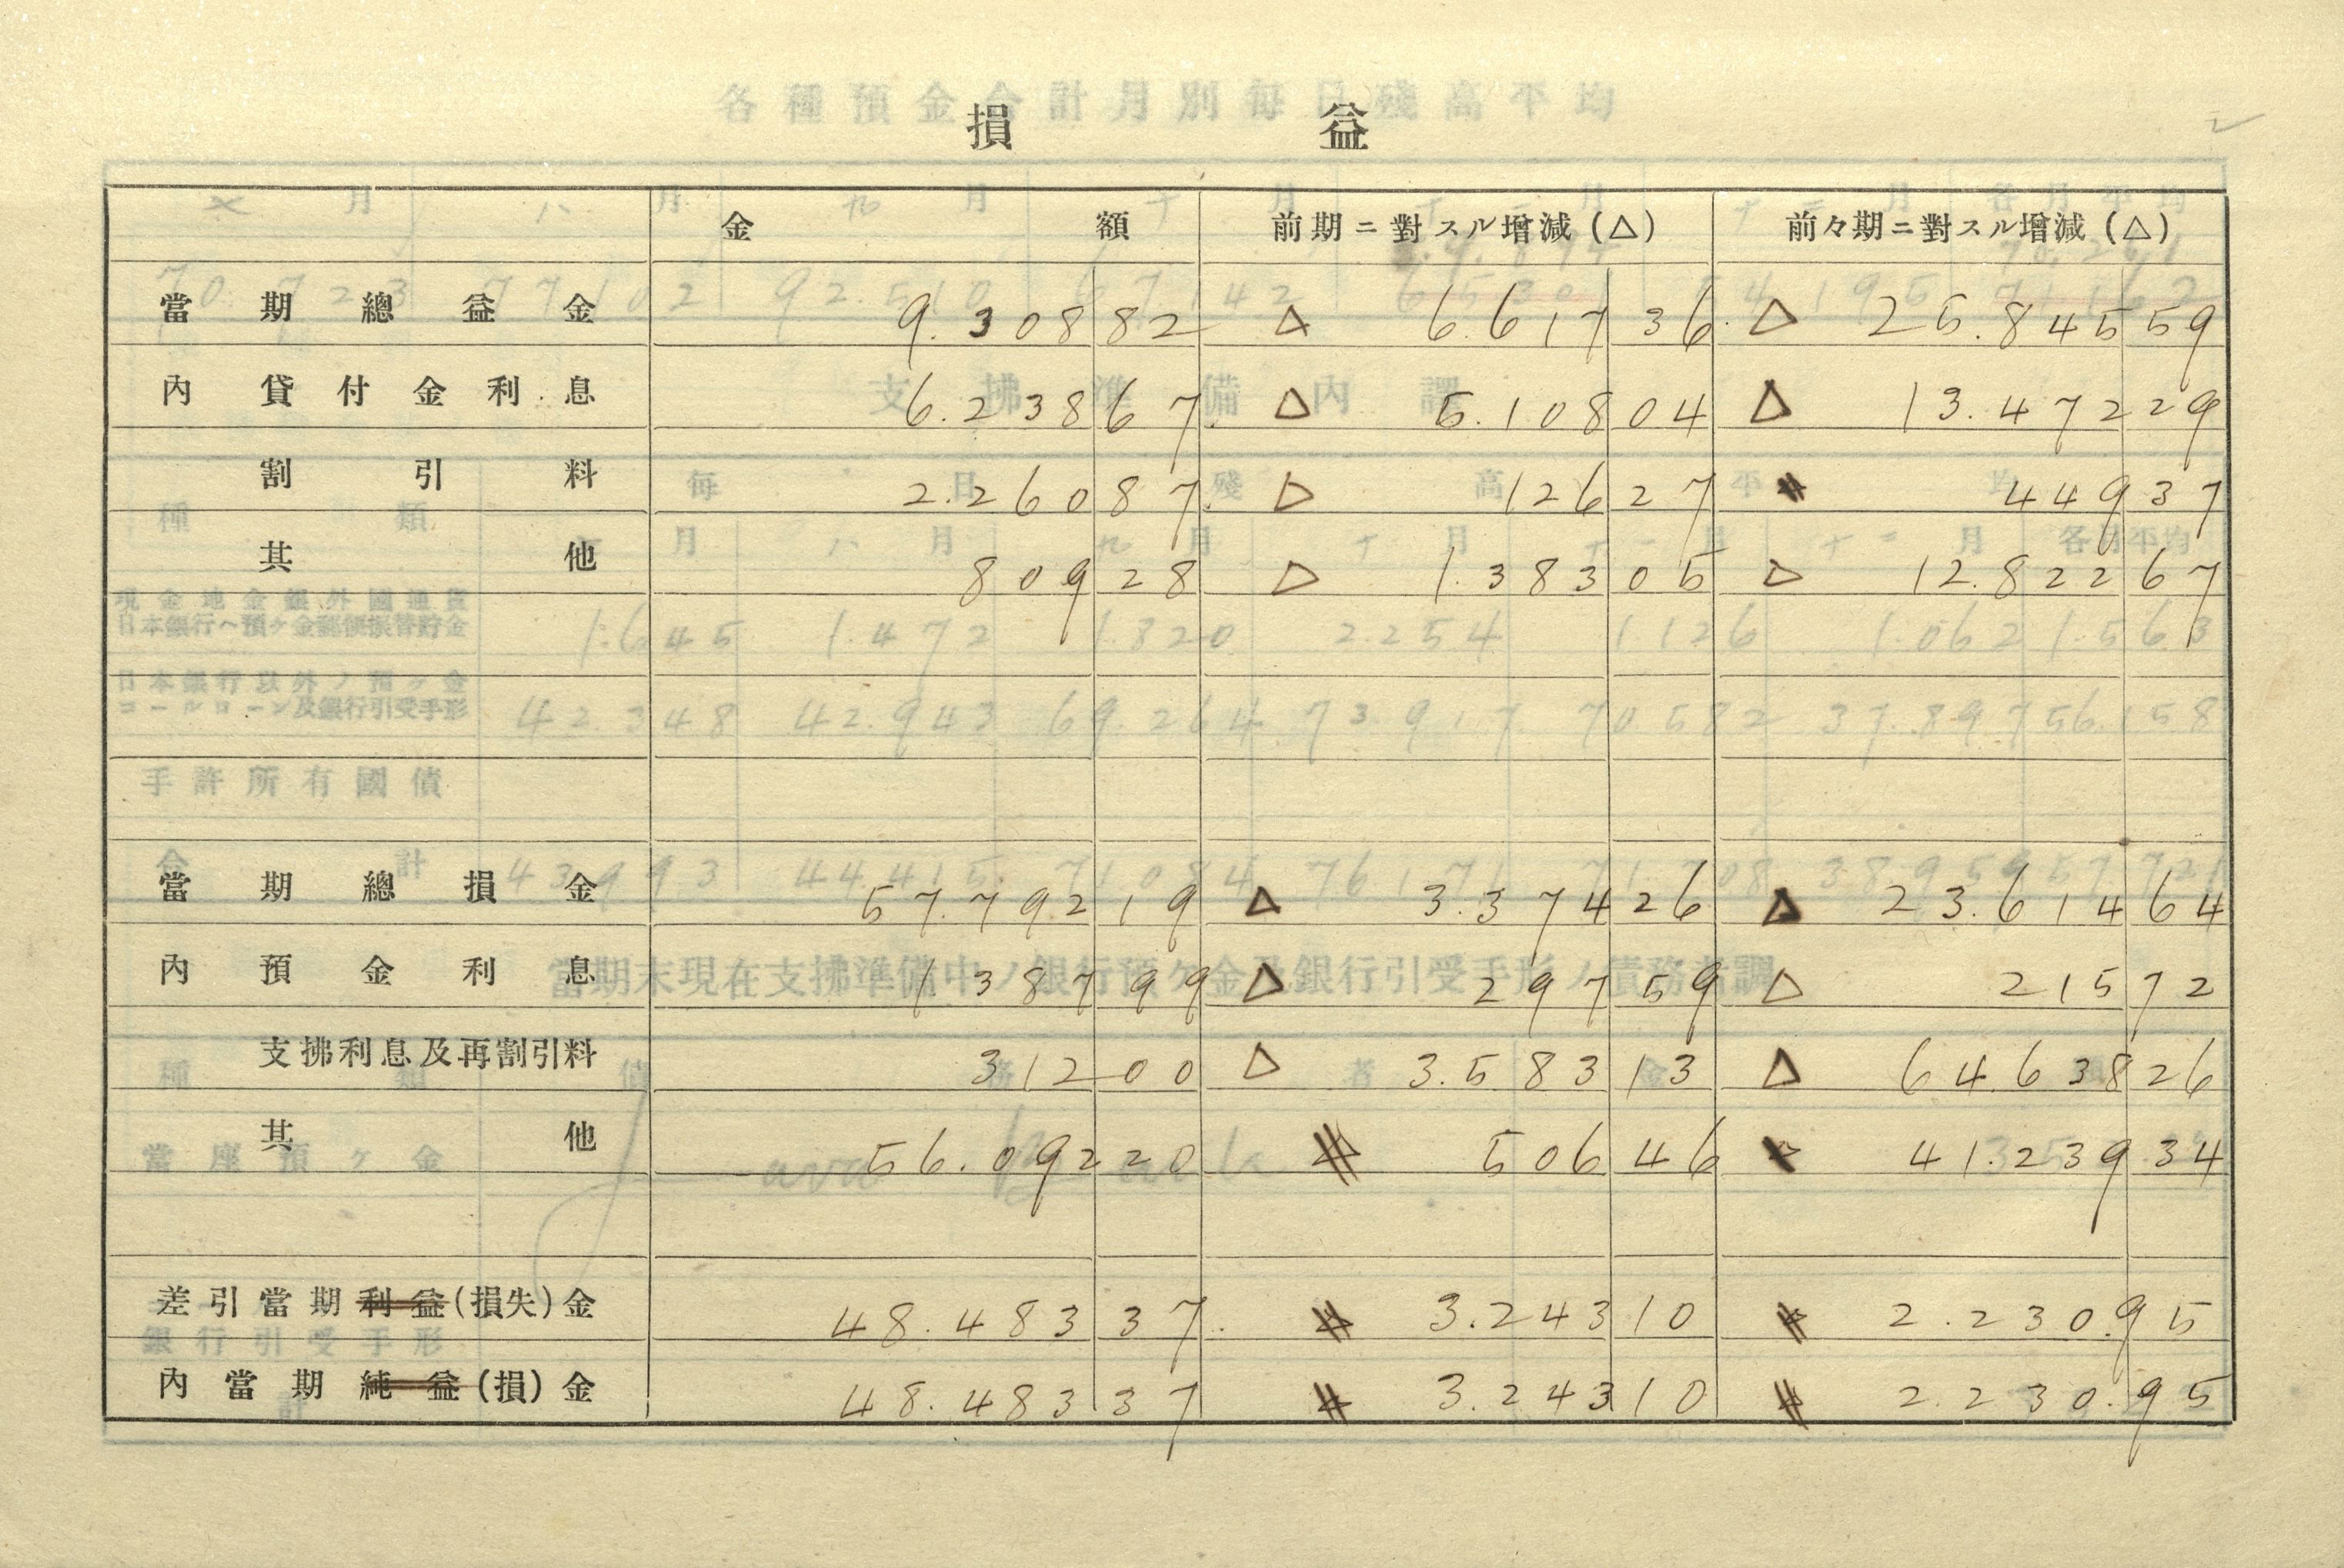 損益
金額 前期ニ對スル增減(△) 前々期ニ對スル增減(△)
當期總益金 9.308 82 △ 6.617 36 △ 25.845 59
內 貸付金利息 6.238 67 △ 5.108 04 △ 13.472 29
割引料 2.260 87 △ 126 27 449 37
其他 809 28 △ 1.383 05 △ 12.822 67
當期總損金 57.792 19 △ 3.374 26 △ 23.614 64
內 預金利息 1.387 99 △ 297 59 △ 215 72
支拂利息及再割引料 312 00 △ 3.583 13 △ 64.638 26
其他 56.092 20 506 46 41.239 34
差引當期利益(損失)金 48.483 37 3.243 10 2.230.95
內當期純益(損)金 48.483 37 3.243 10 2.230.95